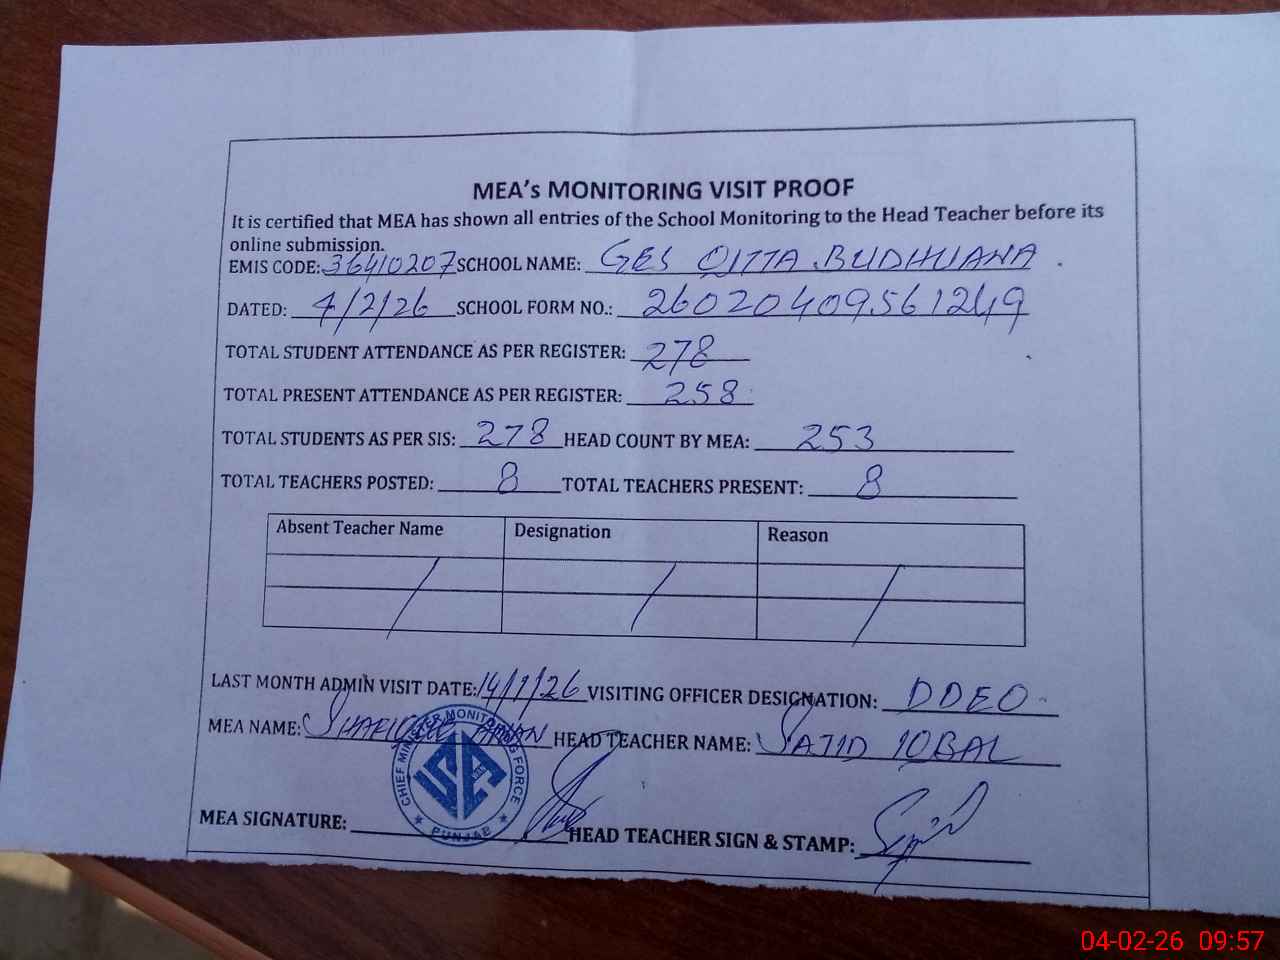 MEA's MONITORING VISIT PROOF
It is certified that MEA has shown all entries of the School Monitoring to the Head Teacher before its
online submission.
EMIS CODE: 36410207 SCHOOL NAME: GES QITTA BUDHUANA
DATED: 4/2/26 SCHOOL FORM NO.: 260204095612419
TOTAL STUDENT ATTENDANCE AS PER REGISTER: 278
TOTAL PRESENT ATTENDANCE AS PER REGISTER: 258
TOTAL STUDENTS AS PER SIS: 278 HEAD COUNT BY MEA: 253
TOTAL TEACHERS POSTED: 8 TOTAL TEACHERS PRESENT: 8
Absent Teacher Name Designation Reason
LAST MONTH ADMIN VISIT DATE: 14/1/26 VISITING OFFICER DESIGNATION: DDEO
MEA NAME: HEAD TEACHER NAME: SAJID IQBAL
CHIEF MINISTER MONITORING FORCE
PUNJAB
MEA SIGNATURE: HEAD TEACHER SIGN & STAMP:
04-02-26 09:57